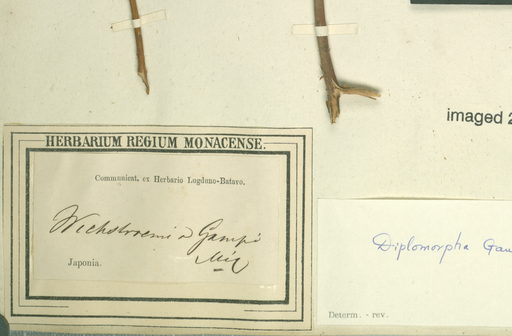 imaged 2
HERBARIUM REGIUM MONACENSE.
Communicat. ex Herbario Lugduno-Batavo.
Wickstroemia Gampi
Miq
Japonia.
Diplomorpha Gam
Determ. - rev.